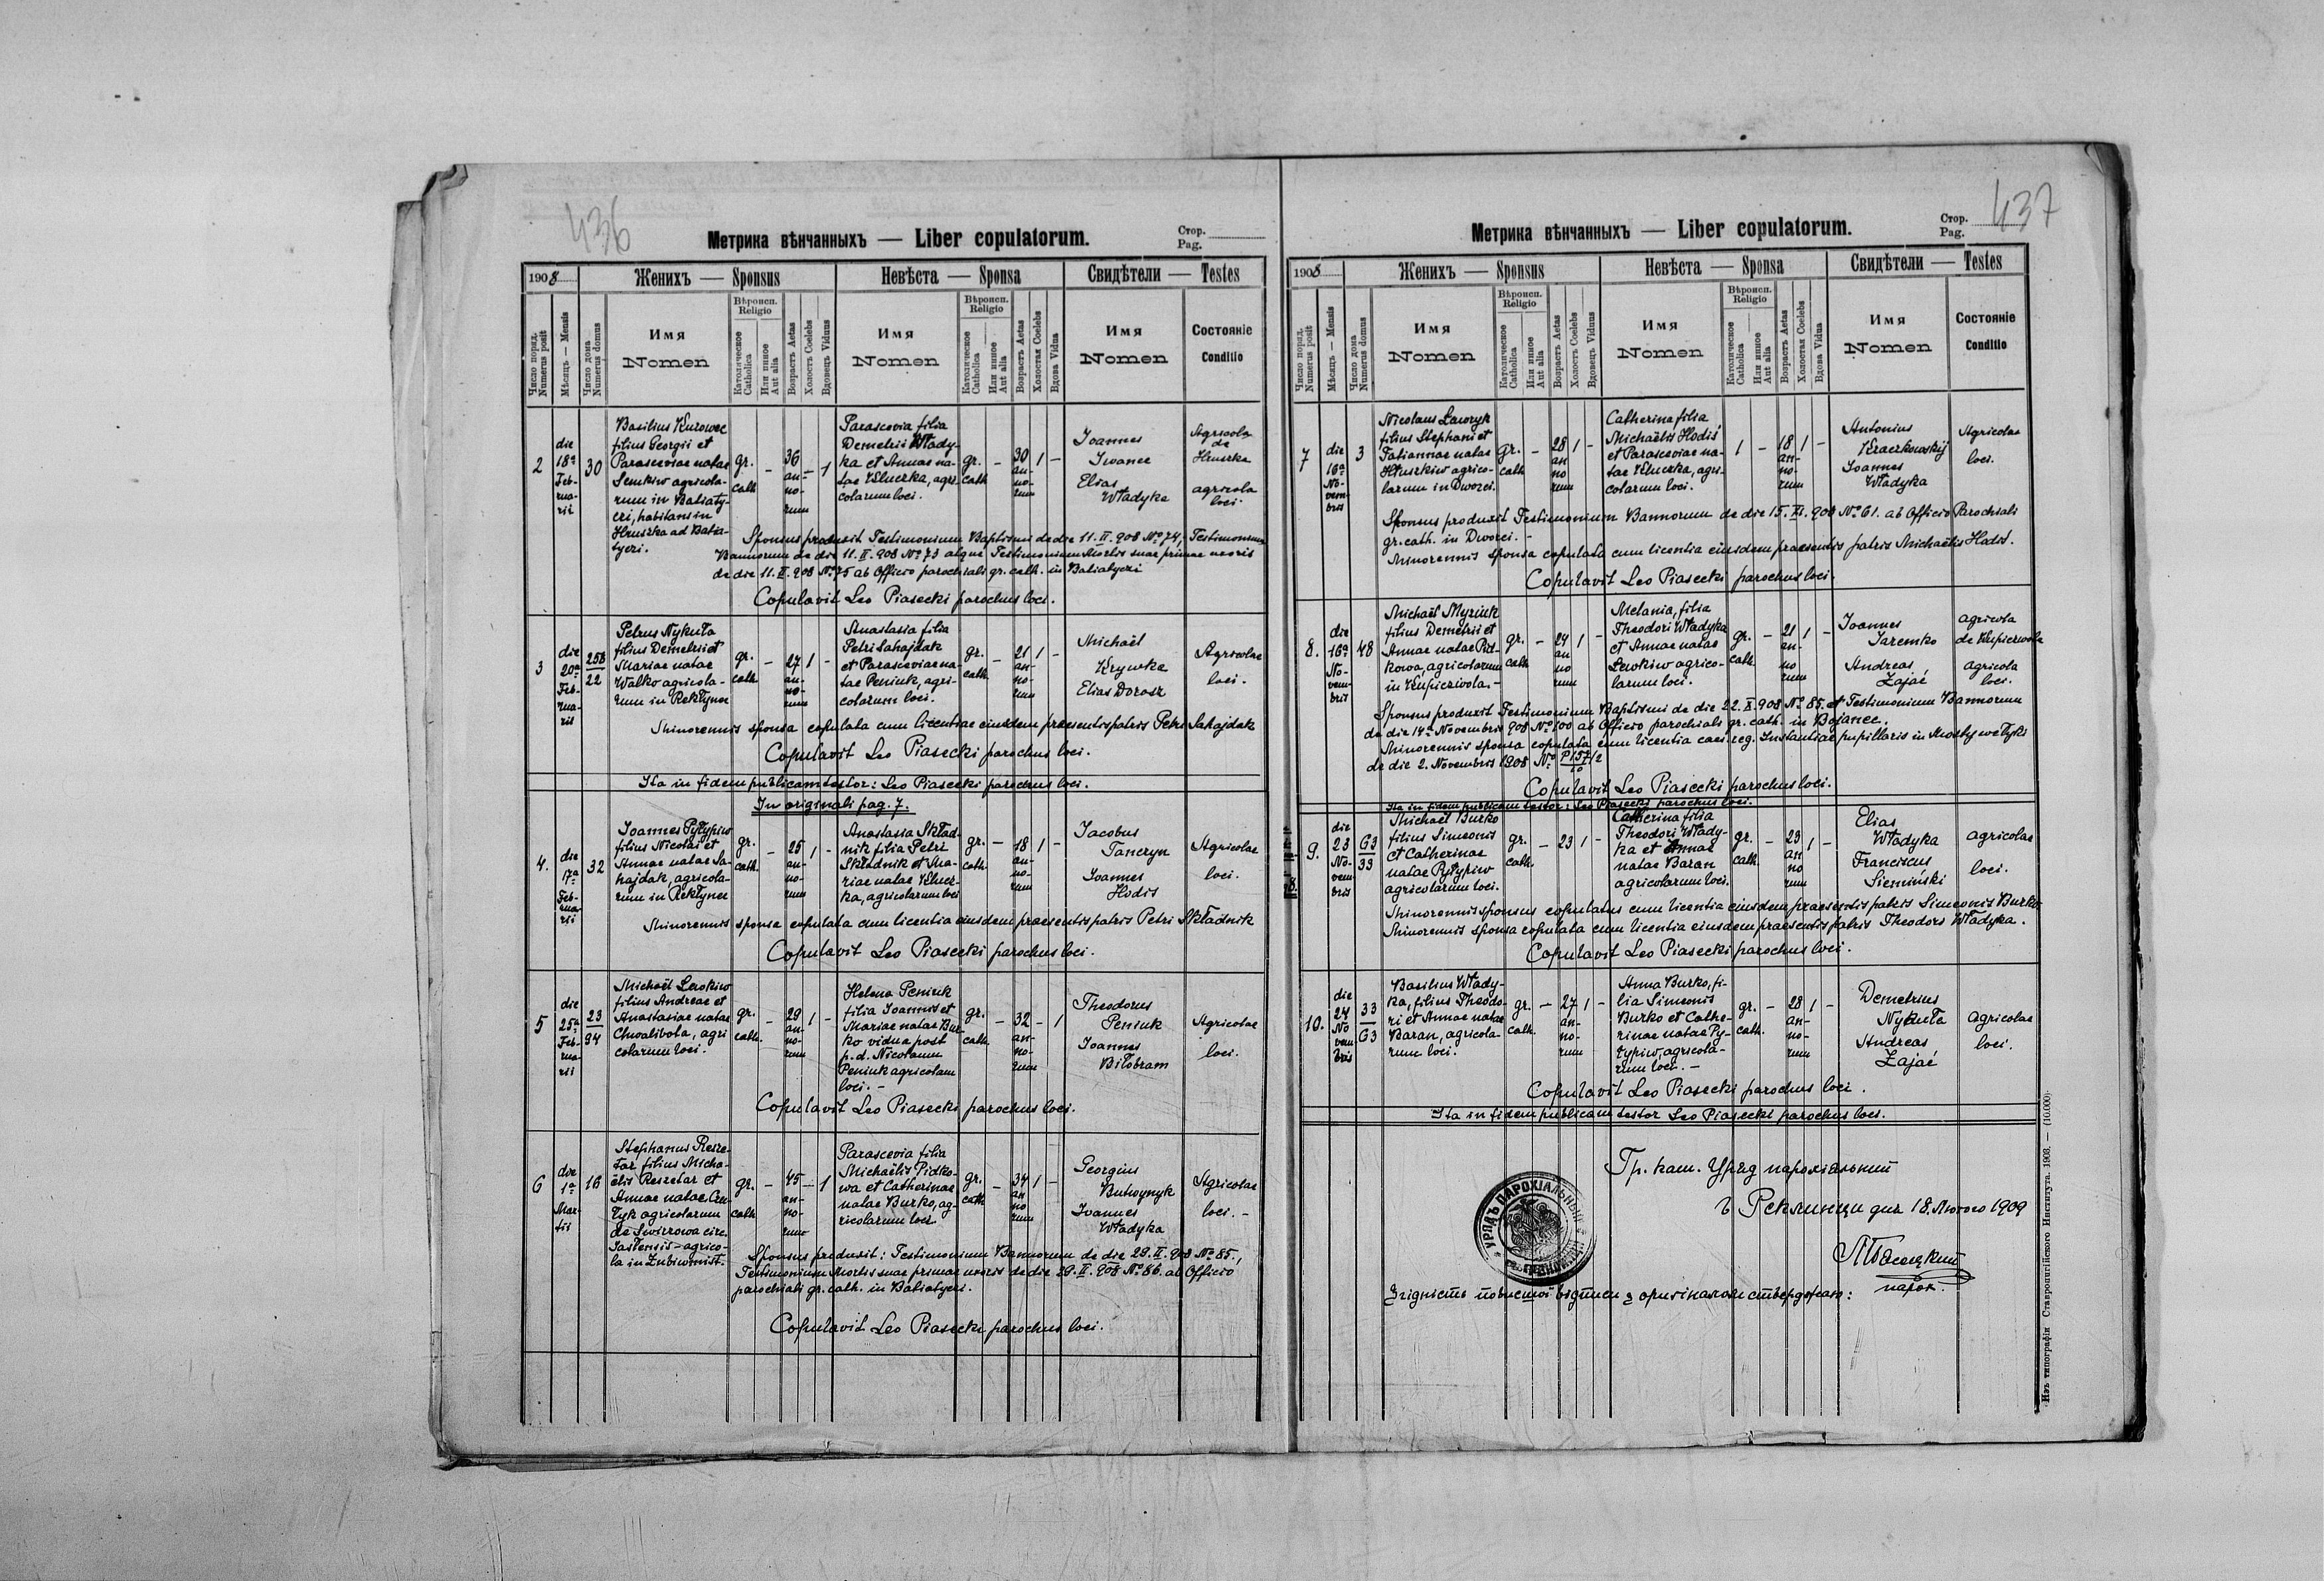 436
Метрика вѣнчанныхъ — Liber copulatorum.
Стор.
Pag.
1908
Женихъ — Sponsus
Невѣста — Sponsa
Свидѣтели — Testes
Число поряд. Numerus posit
Мѣсяцъ — Mensis
Число дома Numerus domus
Имя
Nomen
Вѣроисп. Religio
Католическое Catholica
Или инное Aut alia
Возрастъ Aetas
Холостъ Coelebs
Вдовецъ Viduus
Имя
Nomen
Вѣроисп. Religio
Католическое Catholica
Или инное Aut alia
Возрастъ Aetas
Холостая Coelebs
Вдова Vidua
Имя
Nomen
Состояніе
Conditio
2
die 18ª Februarii
30
Basilius Kurowec
filius Georgii et
Parasceviae natae
Semkiw agricola-
rum in Batiaty-
czi, habitans in
Hruszka ad Batia-
tyczi.
gr. cath
–
36 an-no-rum
–
1
Parascevia filia
Demetrii Włady-
ka et Annae na-
tae Kluczka, agri-
colarum loci.
gr. cath
–
30 an-no-rum
1
–
Joannes
Iwanec
Elias
Władyka
Agricola
de
Hruszka
agricola
loci.
Sponsus produxit Testimonium Baptismi de die 11.II.908 Nº 74, Testimonium
Bannorum de die 11.II.908 Nº 73 atque Testimonium Mortis suae primae uxoris
de die 11.II.908 Nº 75 ab Officio parochiali gr. cath. in Batiatyczi
Copulavit Leo Piasecki parochus loci.
3
die 20ª Februarii
22
Petrus Nykuła
filius Demetrii et
Mariae natae
Walko agricola-
rum in Rekłynec
gr. cath
–
27 an-no-rum
1
–
Anastasia filia
Petri Sahajdak
et Parasceviae na-
tae Peniuk, agri-
colarum loci.
gr. cath
–
21 an-no-rum
1
–
Michaël
Krywka
Elias Dorosz
Agricolae
loci.
Minorennis sponsa copulata cum licentiae eiusdem praesentis patris Petri Sahajdak
Copulavit Leo Piasecki parochus loci.
Ita in fidem publicam testor: Leo Piasecki parochus loci.
In originali pag. 7.
4.
die 17ª Februarii
32
Joannes Pyłypiw
filius Nicolai et
Annae natae Sa-
hajdak, agricola-
rum in Rekłynec
gr. cath.
–
25 an-no-rum
1
–
Anastasia Skład-
nik filia Petri
Składnik et Ma-
riae natae Klucz-
ka, agricolarum loci
gr. cath.
–
18 an-no-rum
1
–
Jacobus
Tanczyn
Joannes
Hodis
Agricolae
loci.
Minorennis sponsa copulata cum licentia eiusdem praesentis patris Petri Składnik
Copulavit Leo Piasecki parochus loci.
5
die 25ª Februarii
23
94
Michaël Lewkiw
filius Andreae et
Anastasiae natae
Chwalibota, agri
colarum loci.
gr. cath.
–
29 an-no-rum
1
–
Helena Peniuk
filia Joannis et
Mariae natae Bur-
ko vidua post
p.d. Nicolaum
Peniuk agricolam
loci. –
gr. cath.
–
32 an-no-rum
–
1
Theodorus
Peniuk
Joannes
Biłobram
Agricolae
loci.
Copulavit Leo Piasecki parochus loci.
6
die 1ª Martii
16
Stephanus Resze-
tar filius Micha-
ëlis Reszetar et
gr. cath
–
45 an-no-rum
–
1
Parascevia filia
Michaëlis Pidko-
wa et Catherinae
natae Burko, ag-
ricolarum loci
gr. cath
–
34 an no rum
1
–
Georgius
Joannes
Władyka
Agricolae
loci. –
Sponsus produxit: Testimonium Bannorum de die 29.II.908 Nº 85,
Testimonium Mortis suae primae uxoris de die 29.II.908 Nº 86. ab Officio
parochiali gr. cath. in Batiatyczi.
Copulavit Leo Piasecki parochus loci.
437
Метрика вѣнчанныхъ — Liber copulatorum.
Стор.
Pag.
1908
Женихъ — Sponsus
Невѣста — Sponsa
Свидѣтели — Testes
Число поряд. Numerus posit
Мѣсяцъ — Mensis
Число дома Numerus domus
Имя
Nomen
Вѣроисп. Religio
Католическое Catholica
Или инное Aut alia
Возрастъ Aetas
Холостъ Coelebs
Вдовецъ Viduus
Имя
Nomen
Вѣроисп. Religio
Католическое Catholica
Или инное Aut alia
Возрастъ Aetas
Холостая Coelebs
Вдова Vidua
Имя
Nomen
Состояніе
Conditio
7
die 16ª Novembris
3
Nicolaus Ławryk
filius Stephani et
Tatiannae natae
Hłuszkiw agrico-
larum in Dworci.
gr. cath
–
28 an no rum
1
–
Catherina filia
Michaëlis Hodiś
et Parasceviae na-
tae Kluczka, agri-
colarum loci.
1
–
18 an-no-rum
1
–
Antonius
Kraczkowskij
Joannes
Władyka
Agricolae
loci.
Sponsus produxit Testimonium Bannorum de die 15.XI.908 Nº 61. ab Officio Parochiali
gr. cath. in Dworci. –
Minorennis sponsa copulata cum licentia eiusdem praesentis patris Michaëlis Hodis.
Copulavit Leo Piasecki parochus loci.
8.
die 16ª Novembris
48
Michaël Myziuk
filius Demetrii et
Annae natae Pid-
kowa, agricolarum
in Kupiczwola. –
gr. cath
–
24 an no rum
1
–
Melania, filia
Theodori Władyka
et Annae natae
Lewkiw agrico-
larum loci.
gr. cath.
–
21 an-no rum
1
–
Joannes
Jaremko
Andreas
Zajać
agricola
de Kupiczwola
agricola
loci.
Sponsus produxit Testimonium Baptismi de die 22.X.908 Nº 85. et Testimonium Bannorum
de die 14ª Novembris 908 Nº 100 ab Officio parochiali gr. cath. in Bojanec.
Minorennis sponsa copulata cum licentia caes. reg. Instantiae pupillaris in Mosty wełyki
de die 2. Novembris 1908 Nº
Copulavit Leo Piasecki parochus loci.
Ita in fidem publicam testor: Leo Piasecki parochus loci.
9.
die 23 Novembris
63
39
Michaël Burko
filius Simeonis
et Catherinae
natae Pyłypiw
agricolarum loci.
gr. cath.
–
23
1
–
Catherina filia
Theodori Włady-
ka et Annae
natae Baran
agricolarum loci.
gr. cath.
–
23 an no rum
1
–
Elias
Władyka
Franciscus
Siemiński
agricolae
loci.
Minorennis sponsus copulatus cum licentia eiusdem praesentis patris Simeonis Burko.
Minorennis sponsa copulata cum licentia eiusdem praesentis patris Theodori Władyka.
Copulavit Leo Piasecki parochus loci.
10.
die 24 Novembris
33
63
Basilius Włady-
ka, filius Theodo-
ri et Annae natae
Baran, agricola-
rum loci.
gr. cath.
–
27 an-no-rum
1
–
Anna Burko, fi-
lia Simeonis
Burko et Cathe-
rinae natae Py-
łypiw, agricola-
rum loci. –
gr. cath.
–
28 an-no-rum
1
–
Demetrius
Nykuła
Andreas
Zajać
agricolae
loci.
Copulavit Leo Piasecki parochus loci.
Ita in fidem publicam testor Leo Piasecki parochus loci.
Гр. кат. Уряд парохіяльний
в Реклинци дня 18. Лютого 1909
парох.
Згідність повисшої відписи з оригіналом стверджаю:
Изъ типографіи Ставропигійского Института. 1908. — (10.000)